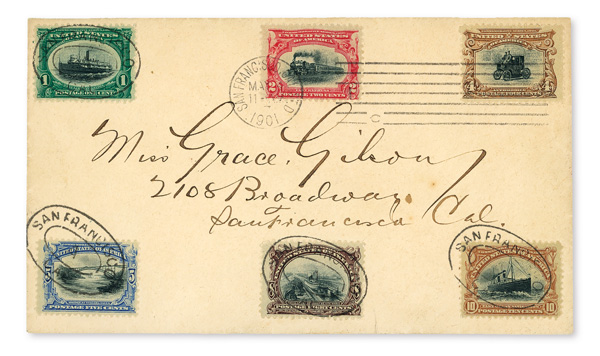 UNITED STATES
OF AMERICA
1 1
POSTAGE ONE CENT
UNITED STATES
OF AMERICA
2 2
POSTAGE TWO CENTS
UNITED STATES
OF AMERICA
4 4
POSTAGE FOUR CENTS
SAN FRANCISCO
MAY
11
1901
C
Miss Grace Gilson
2108 Broadway
San Francisco Cal.
SAN FRANCISCO
UNITED STATES OF AMERICA
5 5
POSTAGE FIVE CENTS
SAN FRAN
POSTAGE EIGHT CENTS
SAN FRAN
10 10
POSTAGE TEN CENTS